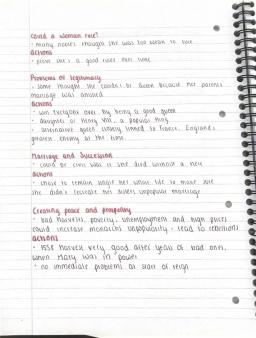 Could a woman rule?
• many nobles thought she was too weak to rule
actions
• prove she's a good ruler over time
Problems of legitimacy
• some thought she couldn't be Queen because her parents
marriage was annuled
actions
• win everyone over by being a good queen
• daughter of Henry VIII, a popular king
• alternative queen closely linked to France, England's
greatest enemy at the time.
Marriage and Succession
• could be civil war if she died without a heir
actions
• chose to remain single her whole life to make sure
she didn't recreate her sisters unpopular marriage
Creating peace and prosperity
• bad harvests, poverty, unemployment and high prices
could increase monarchs unpopularity - lead to rebellions
actions
• 1558 harvest very good after years of bad ones,
when Mary was in power
• no immediate problems at start of reign